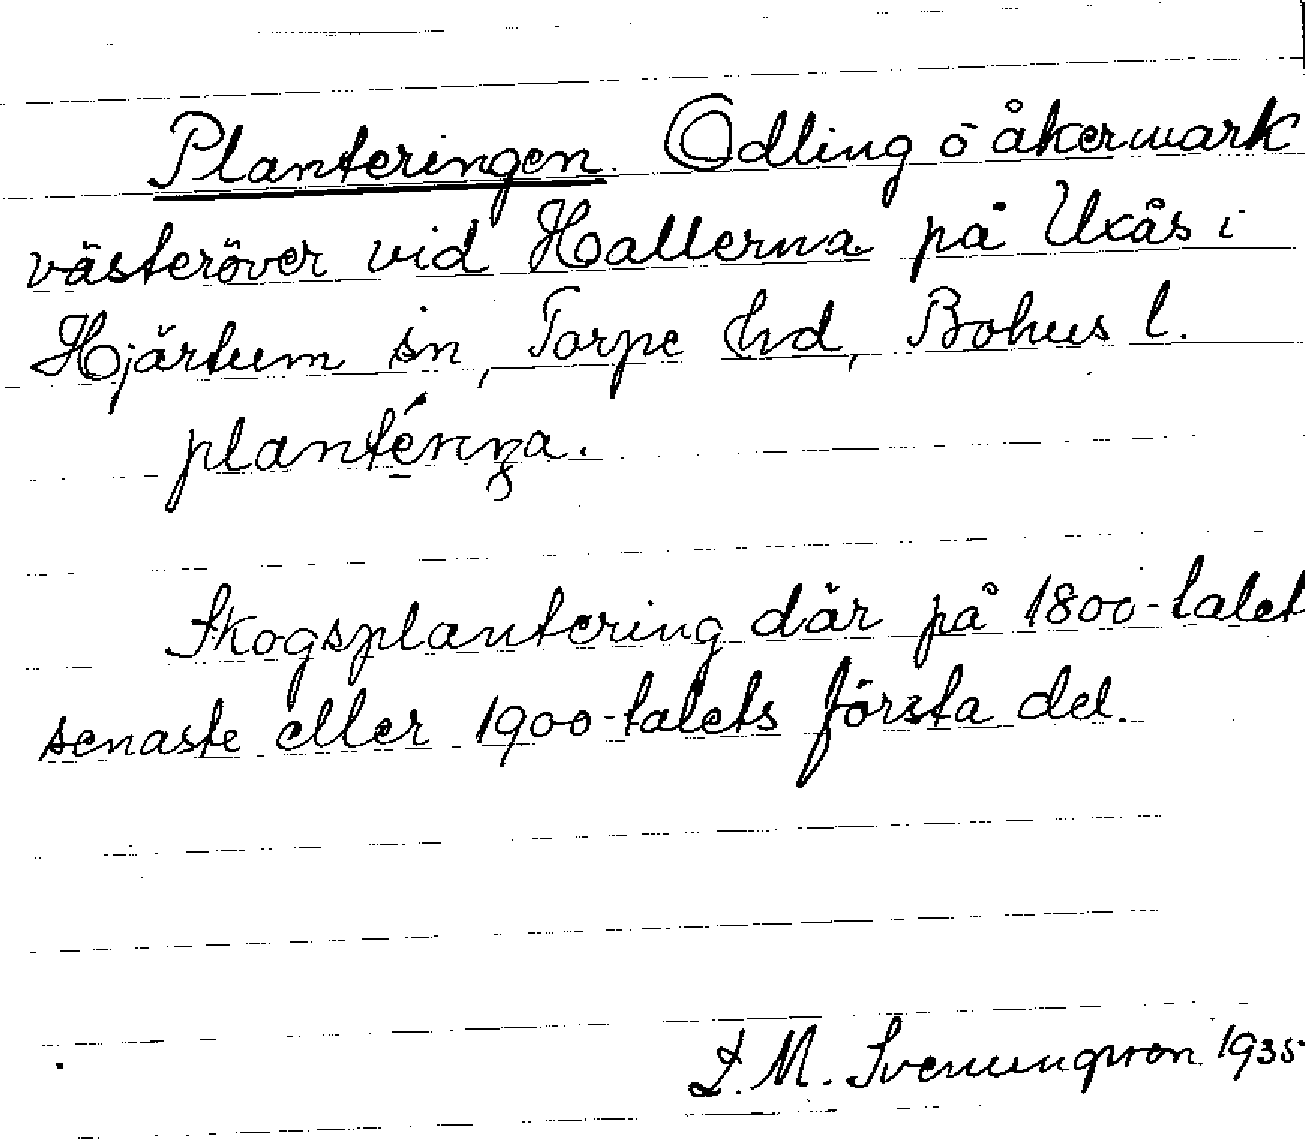 Planteringen Odling ō åkermark
västeröver vid Hallerna på Uxås i
Hjärtum sn, Torpe hd, Bohus l.
planténŋa.
Skogsplantering där på 1800-talet
senaste eller 1900-talets första del.
I. M. Svenungsson 1935